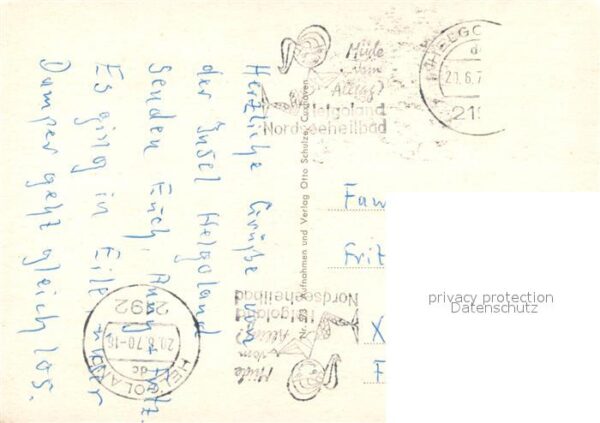 Herzliche Grüße von
der Insel Helgoland
senden Euch, Anny + Fritz.
Es ging in Eile
Dampfer geht gleich los.
Müde
vom
Alltag?
Helgoland
Nordseeheilbad
HELGO
20.6.7
219
Nr. 573 Aufnahmen und Verlag Otto Schulze, Cuxhaven
Fam
Frit
X
F
privacy protection
Datenschutz
Müde
vom
Alltag?
Helgoland
Nordseeheilbad
2192
20.6.70-16
dc
HELGOLAND